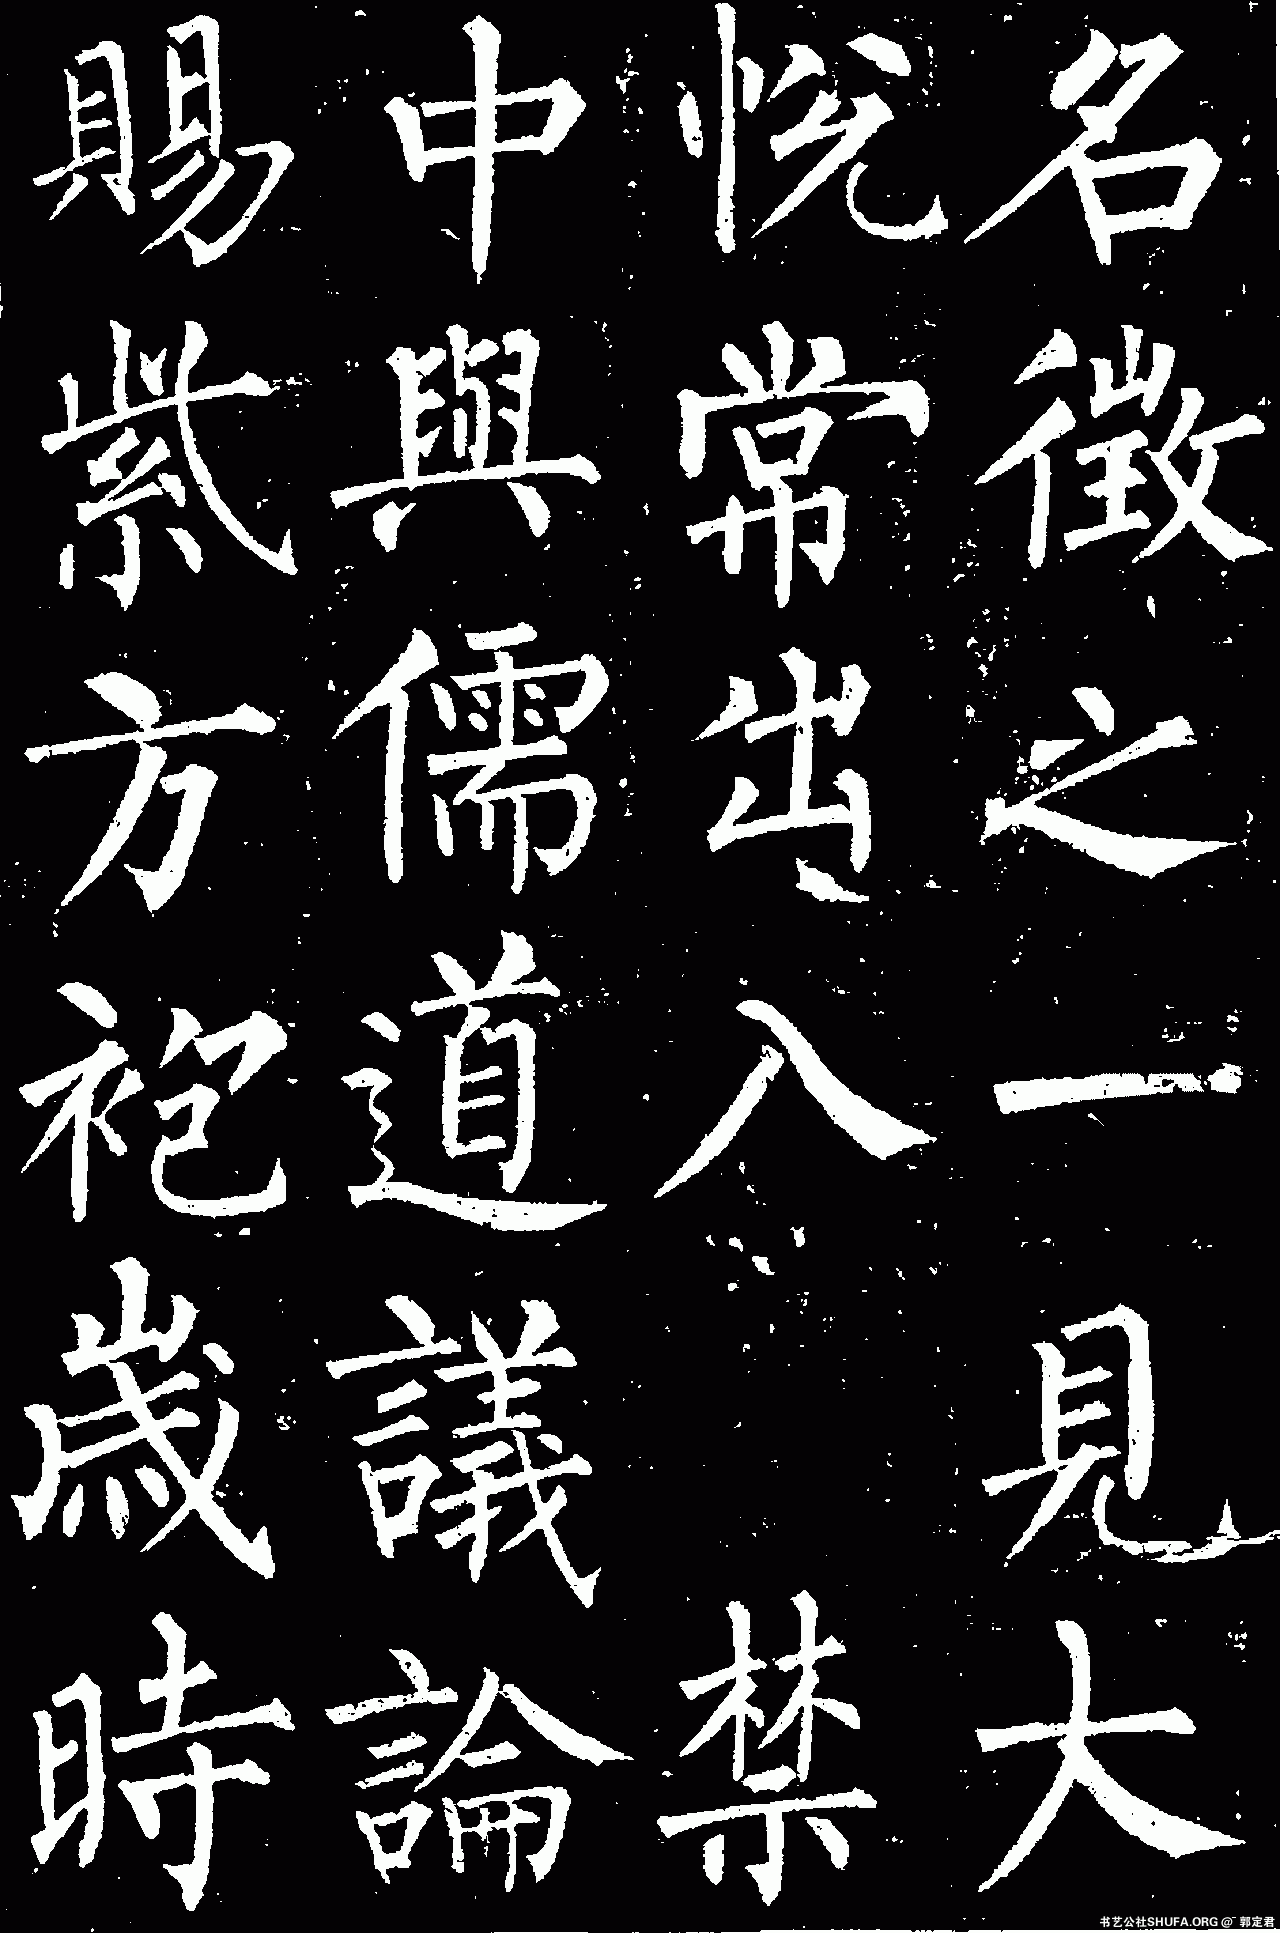 名徵之一見大
悅常出入禁
中與儒道議論
賜紫方袍歲時
书艺公社SHUFA.ORG @ 郭定君